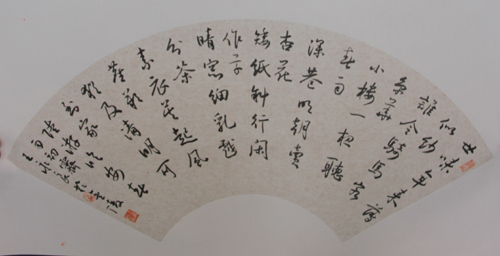 世味年来薄
似紗
誰令騎馬客
京華
小樓一夜聽
春雨
深巷明朝賣
杏花
矮紙斜行閑
作草
晴窗細乳戲
分茶
素衣莫起風
塵歎
猶及清明可
到家